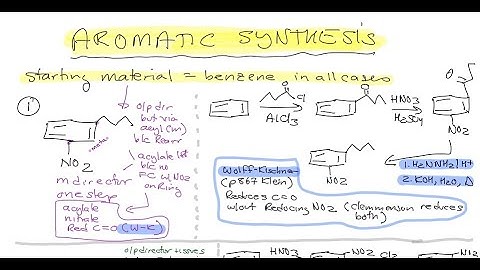 AROMATIC SYNTHESIS
starting material = benzene in all cases
①
o/p dir
but via
acyl (m)
b/c Rearr
NO2
acylate 1st
b/c no
FC w NO2
on Ring
m director
one step
acylate
nitrate
Red C=O (W-K)
Cl
AlCl3
HNO3
H2SO4
O
NO2
1. H2NNH2 | H+
2. KOH, H2O, Δ
NO2
Wolff-Kischner
(p 867 Klein)
Reduces C=O
w/out Reducing NO2 (clemmenson reduces
both)
o/p director issues
HNO3